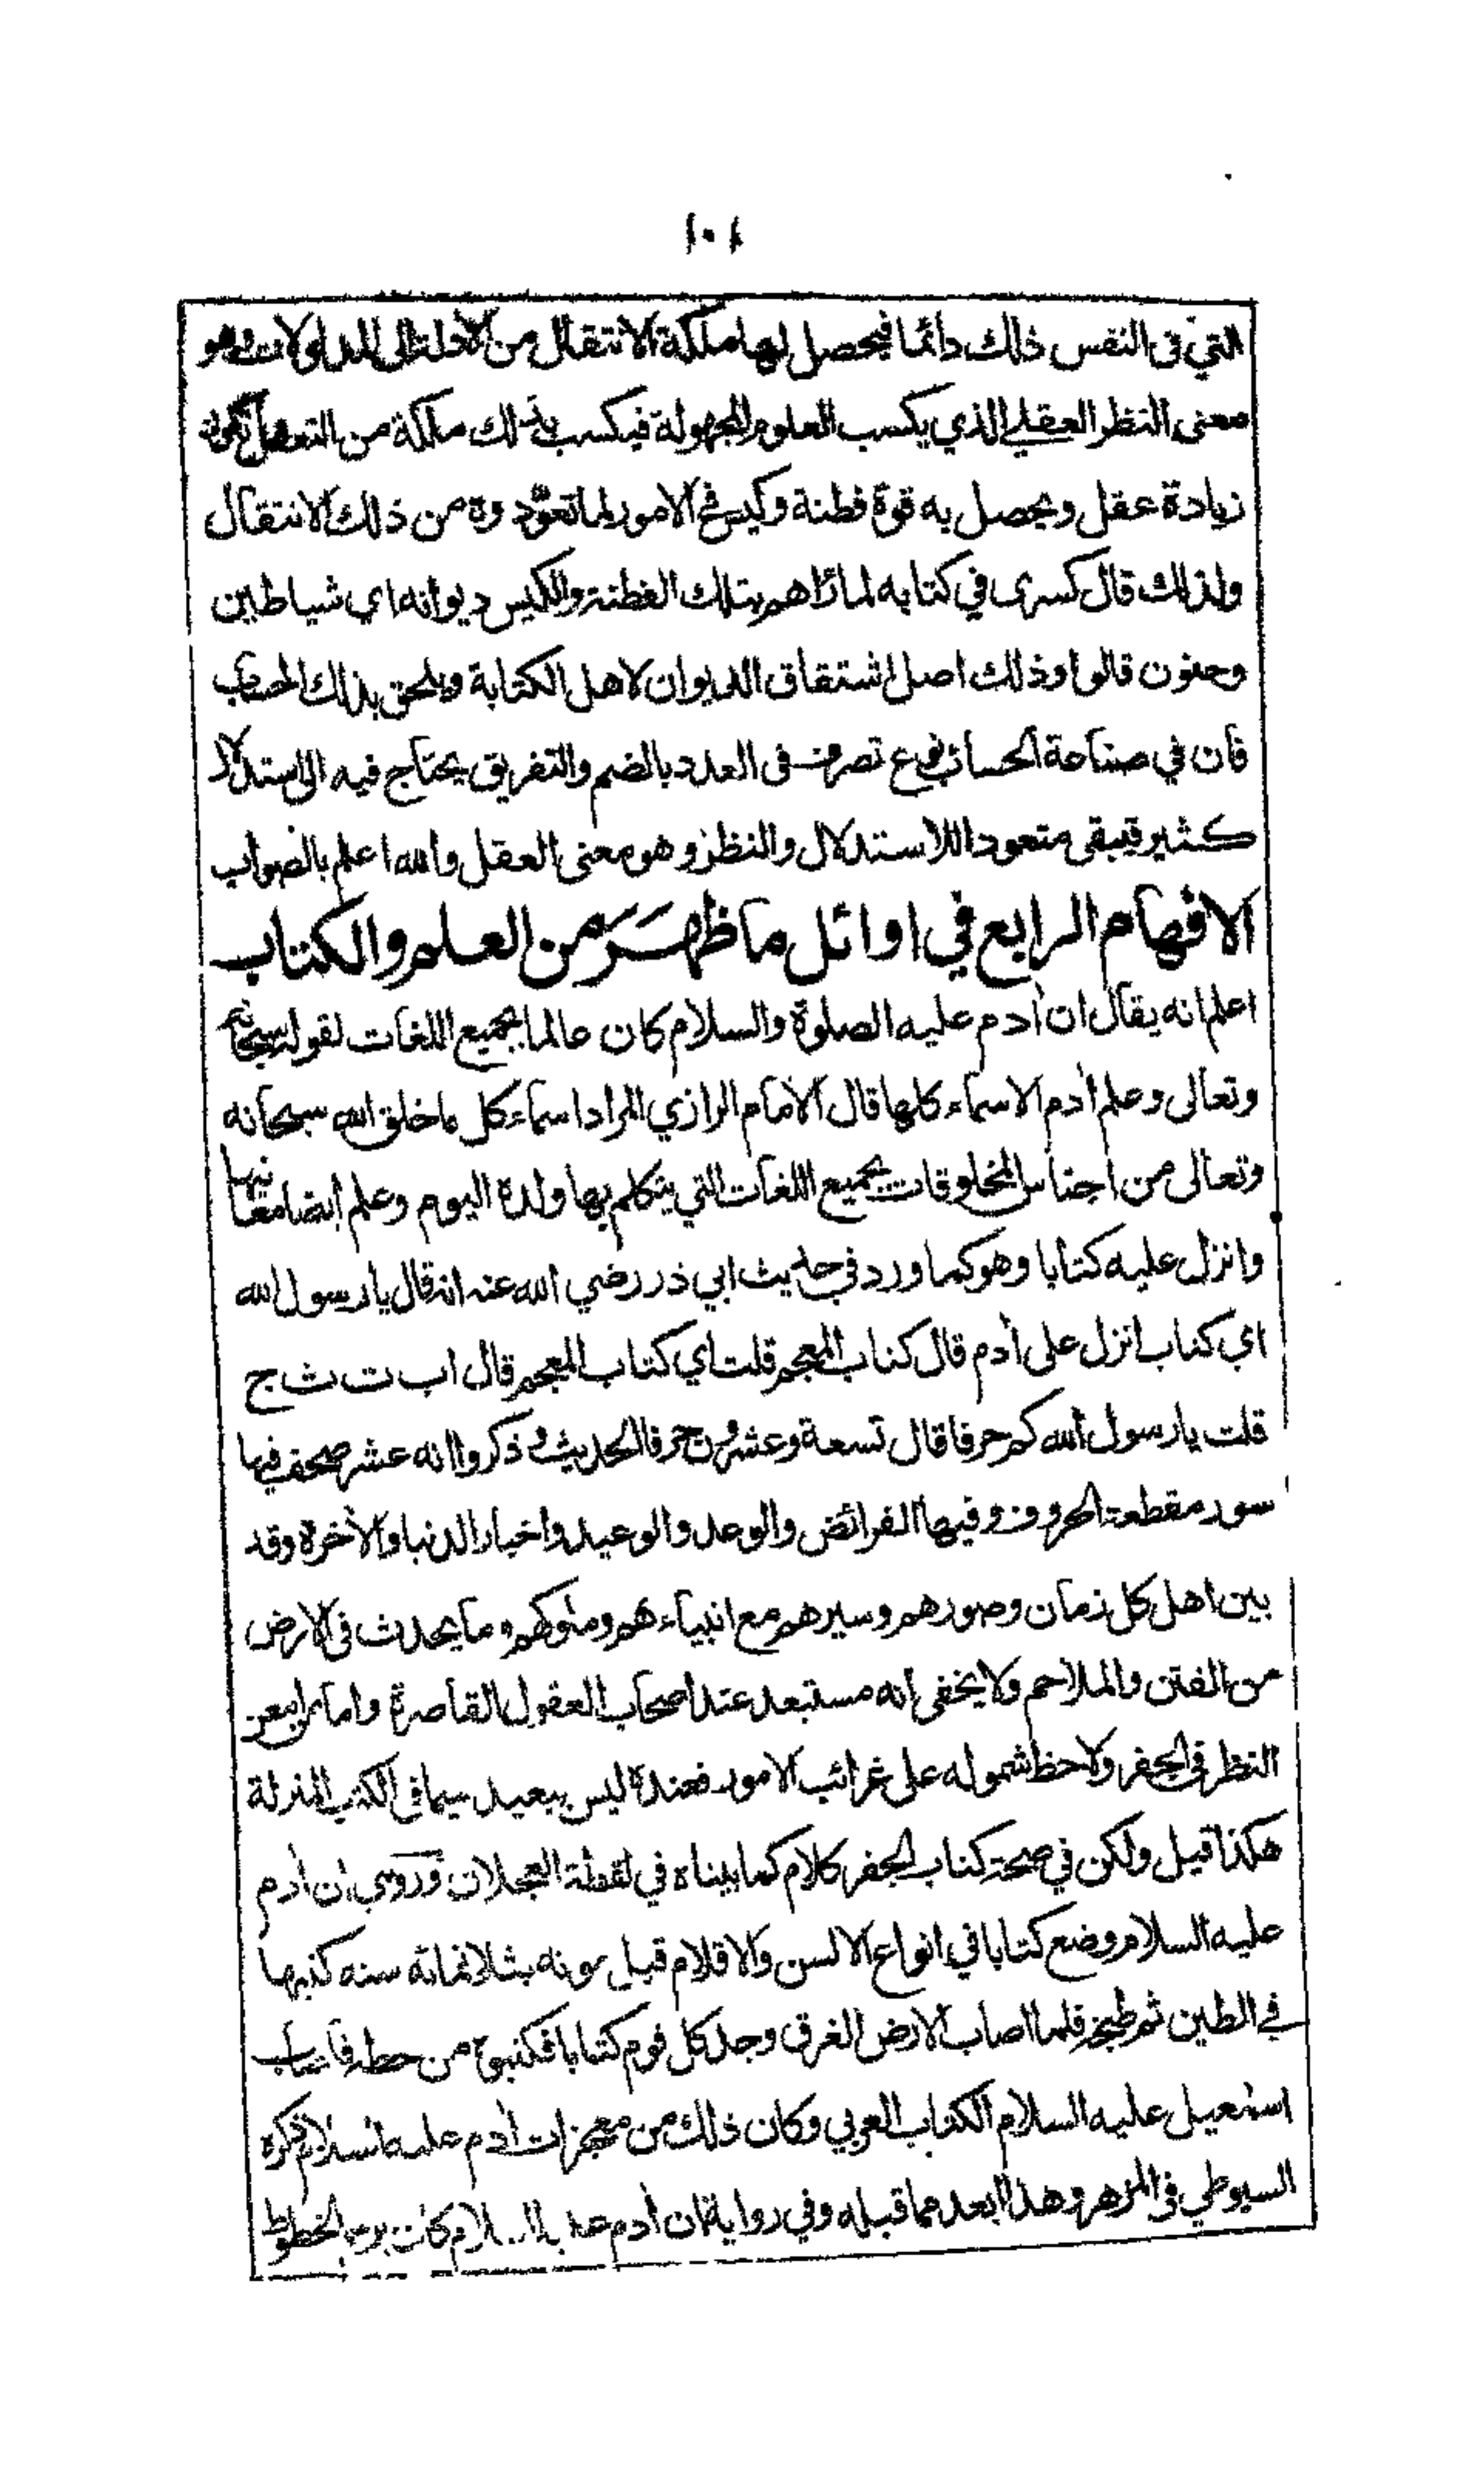 ١٠٤
التي في النفس ذلك دائما فيحصل لها ملكة الانتقال من الادلة الى المدلولات وهو
معنى النظر العقلي الذي يكسب العلوم المجهولة فيكسب بذلك ملكة من التعقل تكون
زيادة عقل ويحصل به قوة فطنة وكيس في الامور لما تعودوه من ذلك الانتقال
ولذلك قال كسرى في كتابه لما رآهم بتلك الفطنة والكيس ديوانه اي شياطين
وجنون قالوا وذلك اصل اشتقاق الديوان لاهل الكتابة ويلحق بذلك الحساب
فان في صناعة الحساب نوع تصرف في العدد بالضم والتفريق يحتاج فيه الى استدلال
كثير فيبقى متعودا للاستدلال والنظر وهو معنى العقل والله اعلم بالصواب
الافهام الرابع في اوائل ما ظهر من العلم والكتاب
اعلم انه يقال ان آدم عليه الصلوة والسلام كان عالما بجميع اللغات لقوله سبحانه
وتعالى وعلم آدم الاسماء كلها قال الامام الرازي المراد اسماء كل ما خلق الله سبحانه
وتعالى من اجناس المخلوقات بجميع اللغات التي يتكلم بها ولده اليوم وعلم ايضا معانيها
وانزل عليه كتابا وهو كما ورد في حديث ابي ذر رضي الله عنه انه قال يا رسول الله
اي كتاب انزل على آدم قال كتاب المعجم قلت اي كتاب المعجم قال ا ب ت ث ج
قلت يا رسول الله كم حرفا قال تسعة وعشرون حرفا الحديث وذكروا انه عشر صحف فيها
سور مقطعة الحروف وفيها الفرائض والوعد والوعيد واخبار الدنيا والآخرة وقد
بين اهل كل زمان وصورهم وسيرهم مع انبياءهم وملوكهم وما يحدث في الارض
من الفتن والملاحم ولا يخفى انه مستبعد عند اصحاب العقول القاصرة واما من امعن
النظر في الجفر ولاحظ شموله على غرائب الامور فعنده ليس ببعيد سيما في الكتب المنزلة
هكذا قيل ولكن في صحة كتاب الجفر كلام كما بيناه في لقطة العجلان وروي ان آدم
عليه السلام وضع كتابا في انواع الالسن والاقلام قبل موته بثلاثمائة سنه كتبها
في الطين ثم طبخه فلما اصاب الارض الغرق وجد كل قوم كتابا فكتبوه من خطه فاصاب
اسمعيل عليه السلام الكتاب العربي وكان ذلك من معجزات آدم عليه السلام ذكره
السيوطي في المزهر وهذا ابعد مما قبله وفي رواية ان آدم عليه السلام كان يرسم الخطوط